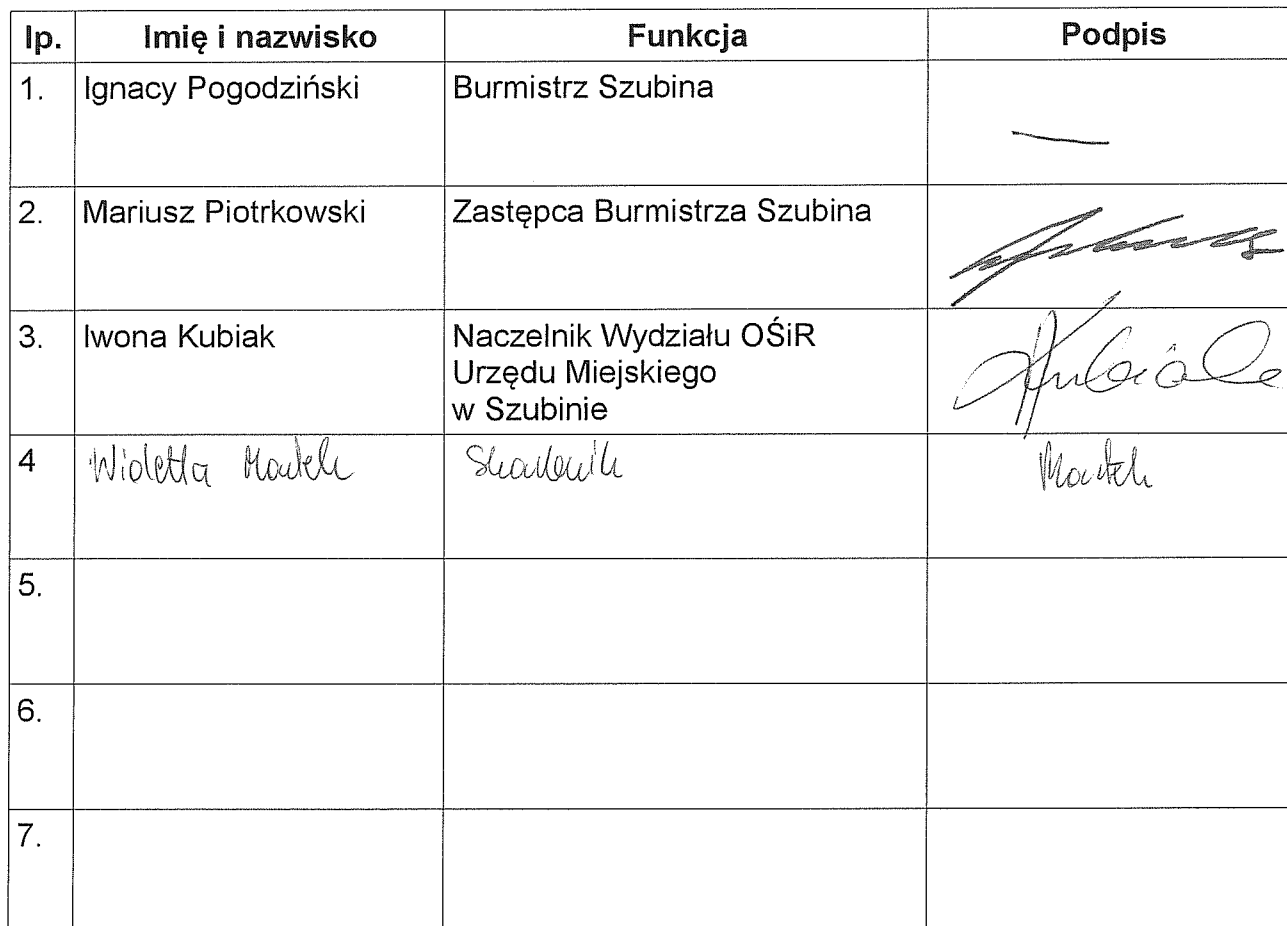 lp. Imię i nazwisko Funkcja Podpis
1. Ignacy Pogodziński Burmistrz Szubina
2. Mariusz Piotrkowski Zastępca Burmistrza Szubina
3. Iwona Kubiak Naczelnik Wydziału OŚiR
Urzędu Miejskiego
w Szubinie
Kubiak
4 Wioletta Skarbnik
5.
6.
7.